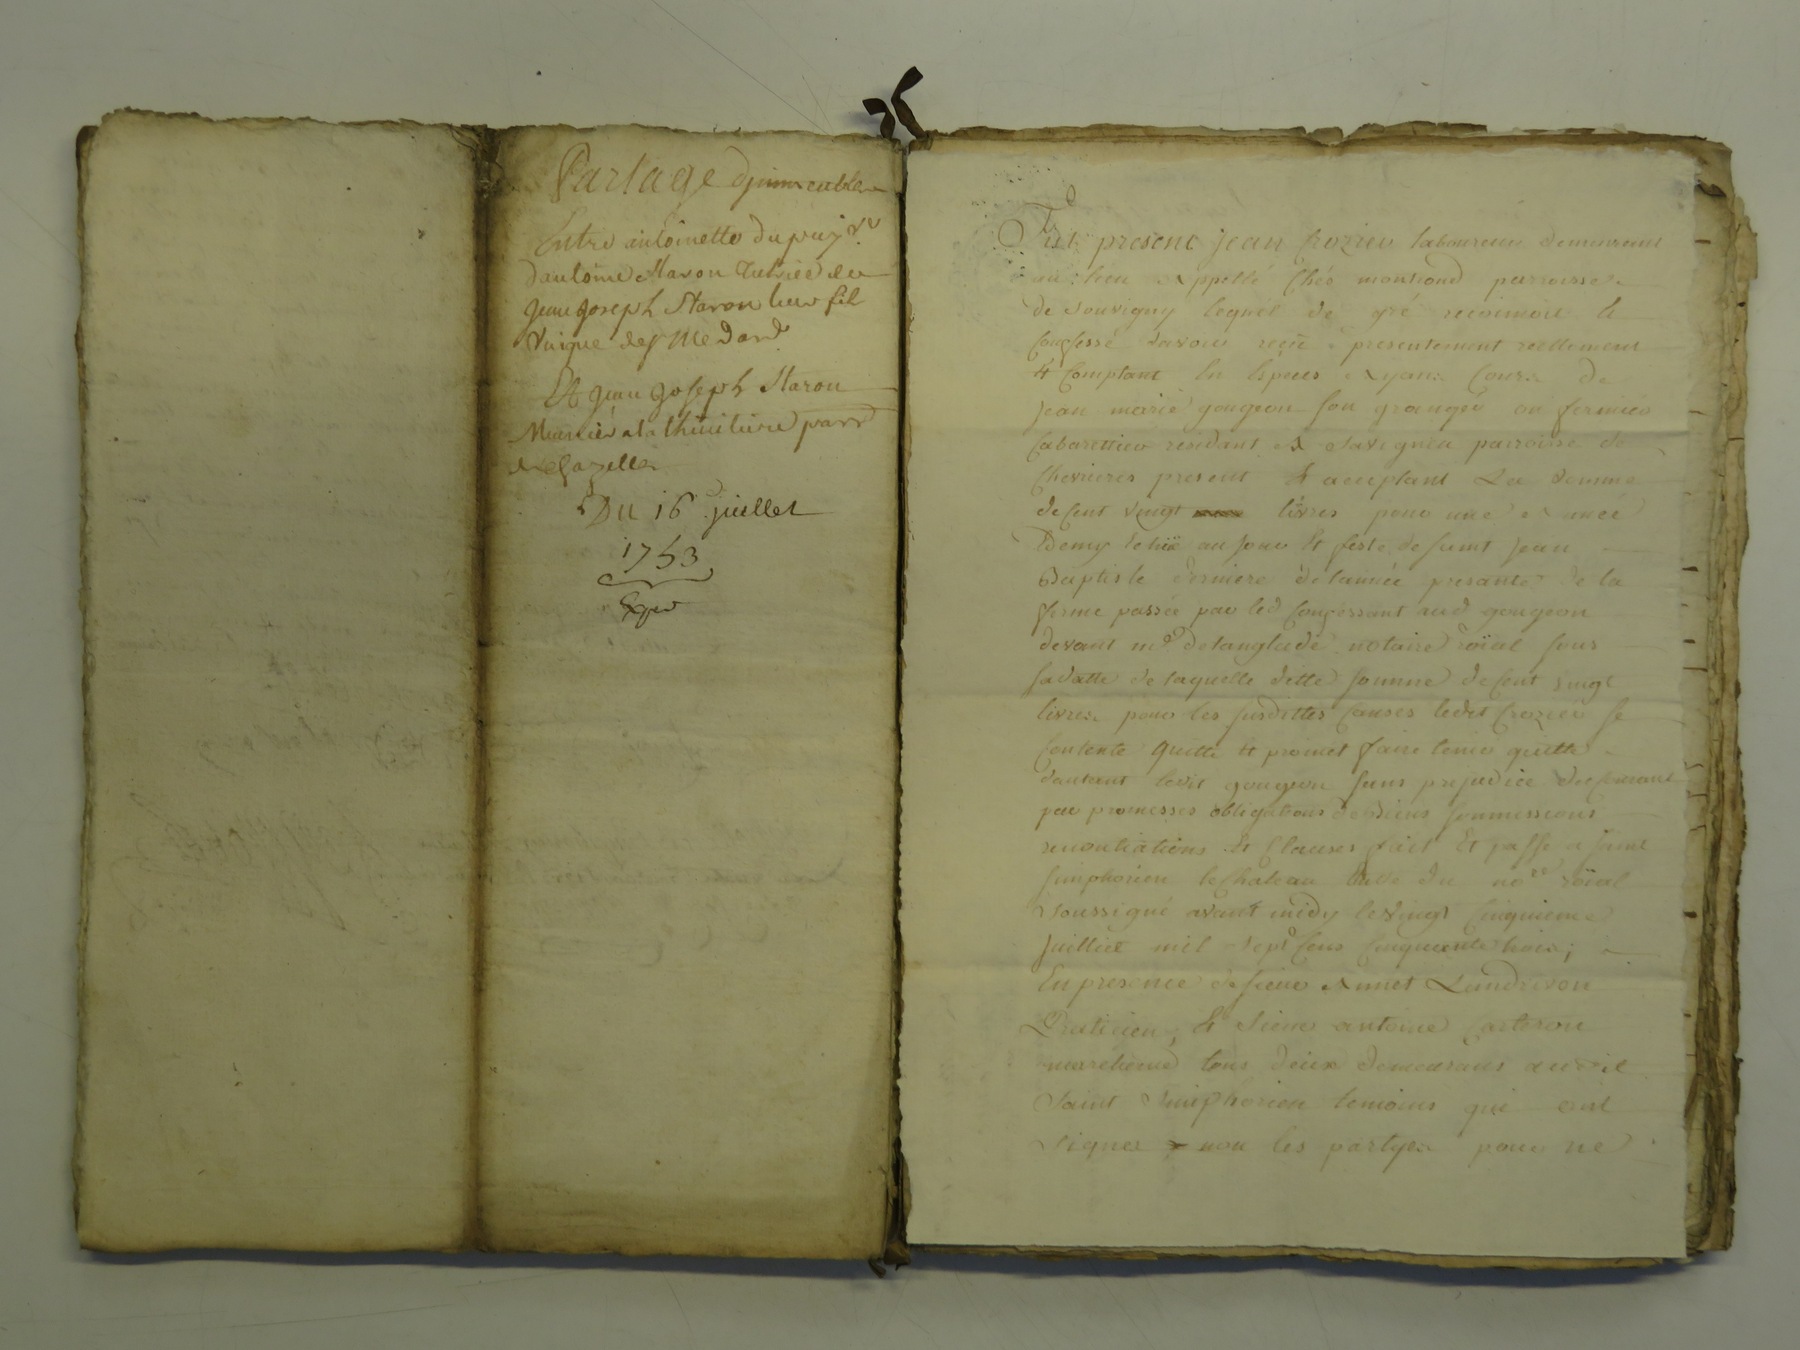 Partage dimmeubles
Entre antoinette dupuy ve
dantoine Staron Tutrice de
Jean Joseph Staron leur fil
Unique de St Medard
Et Jean Joseph Staron
Meusnier a la parr
de Chazelles
Du 16 juillet
1753
Exper
Fut present jean Crozier laboureur demeurant
au lieu Appellé Chés montrond parroisse
de Souvigny lequel de gré reconnoit et
Confesse davoir reçu presentement reellement
et Comptant En Especes Ayans Cours de
jean marie gougeon son granger ou fermier
Cabarettier residant A Savigneu parroisse de
Chevrieres present et acceptant La somme
de Cent vingt livres pour une Année
Demy Echüe au jour et feste de saint jean
Baptiste derniere de lannée presante de la
ferme passée par led Confessant aud gougeon
devant me Delanglade notaire roïal sous
sa datte de laquelle ditte somme de Cent vingt
livres pour les susdittes Causes ledit Crozier se
Contente quitte et promet faire tenir quitte
dautant ledit gougeon sans prejudice du Courant
par promesses obligations de biens soumissions
renontiations et Clauses fait Et passé a saint
simphorien le Chateau du nore roïal
Soussigné avant midy le vingt Cinquieme
juilliet mil sept Cens Cinquante trois;
En presence de sieur Annet Landrivon
Praticien, et Sieur antoine Carteron
marchand tous deux demeurans audit
Saint Simphorien temoins qui ont
signer non les partyes pour ne